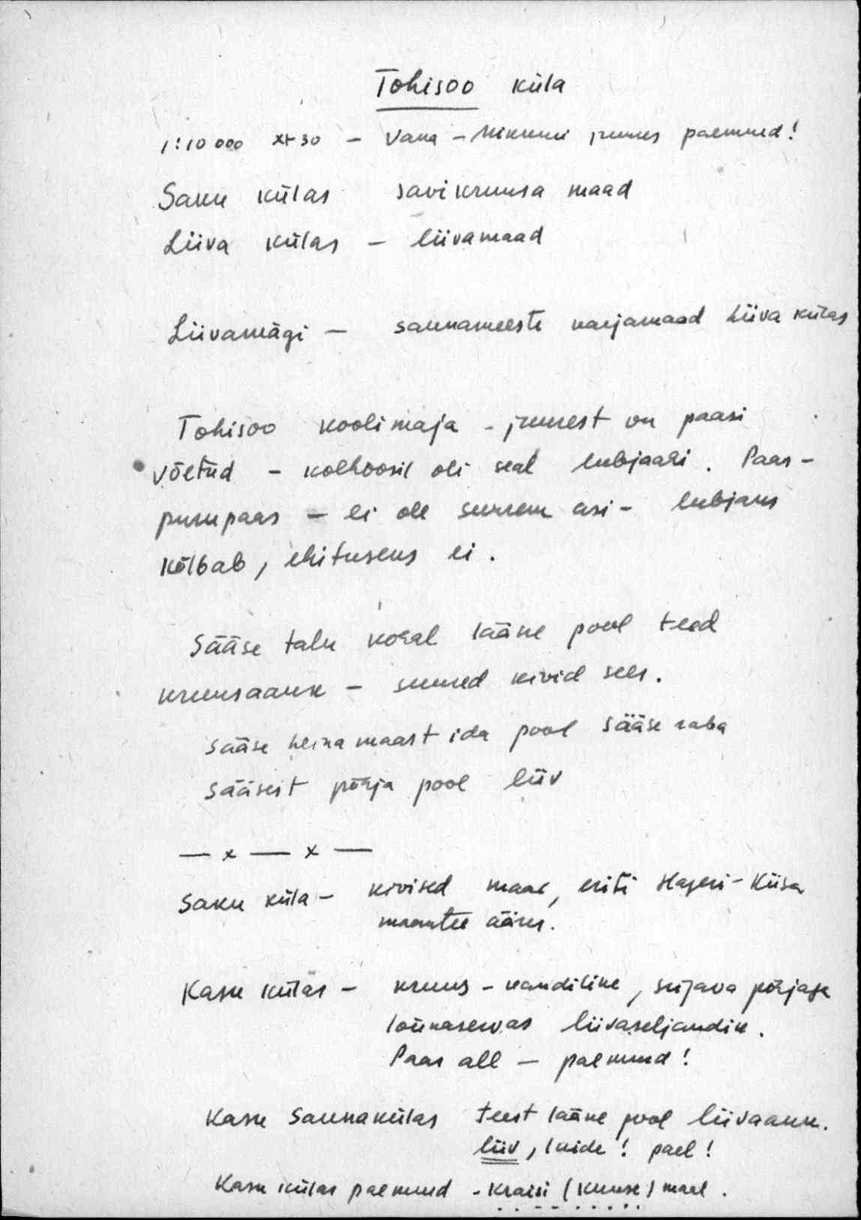 Tohisoo küla
1:10 000 xr 30 – Vana – juures paemuud!
Saku külas savikruusa maad
Liiva külas – liivamaad
Liivamägi – saunameeste karjamaad Liiva külas
Tohisoo koolimaja – juurest on paasi
võetud – kolhoosil oli seal lubjaahi. Paas –
purupaas – ei ole suurem asi – lubjaks
kõlbab, ehituseks ei.
Sääse talu kohal lääne pool teed
kruusaauk – suured kivid sees.
Sääse heinamaast ida pool Sääse raba
Säässt põhja pool liiv
— x — x —
Saku küla – kivised maad, eriti Hageri-Kiisa
maantee ääres.
Kasu külas – kruus – kandiline, põhjaga
lõunaservas liivaseljandik.
Paas all – paemuud!
Kasu Saunakülas teest lääne pool liivaauk.
liiv, laide! pael!
Kasu külas paemuud – Kraisi (Kuuse) mael.